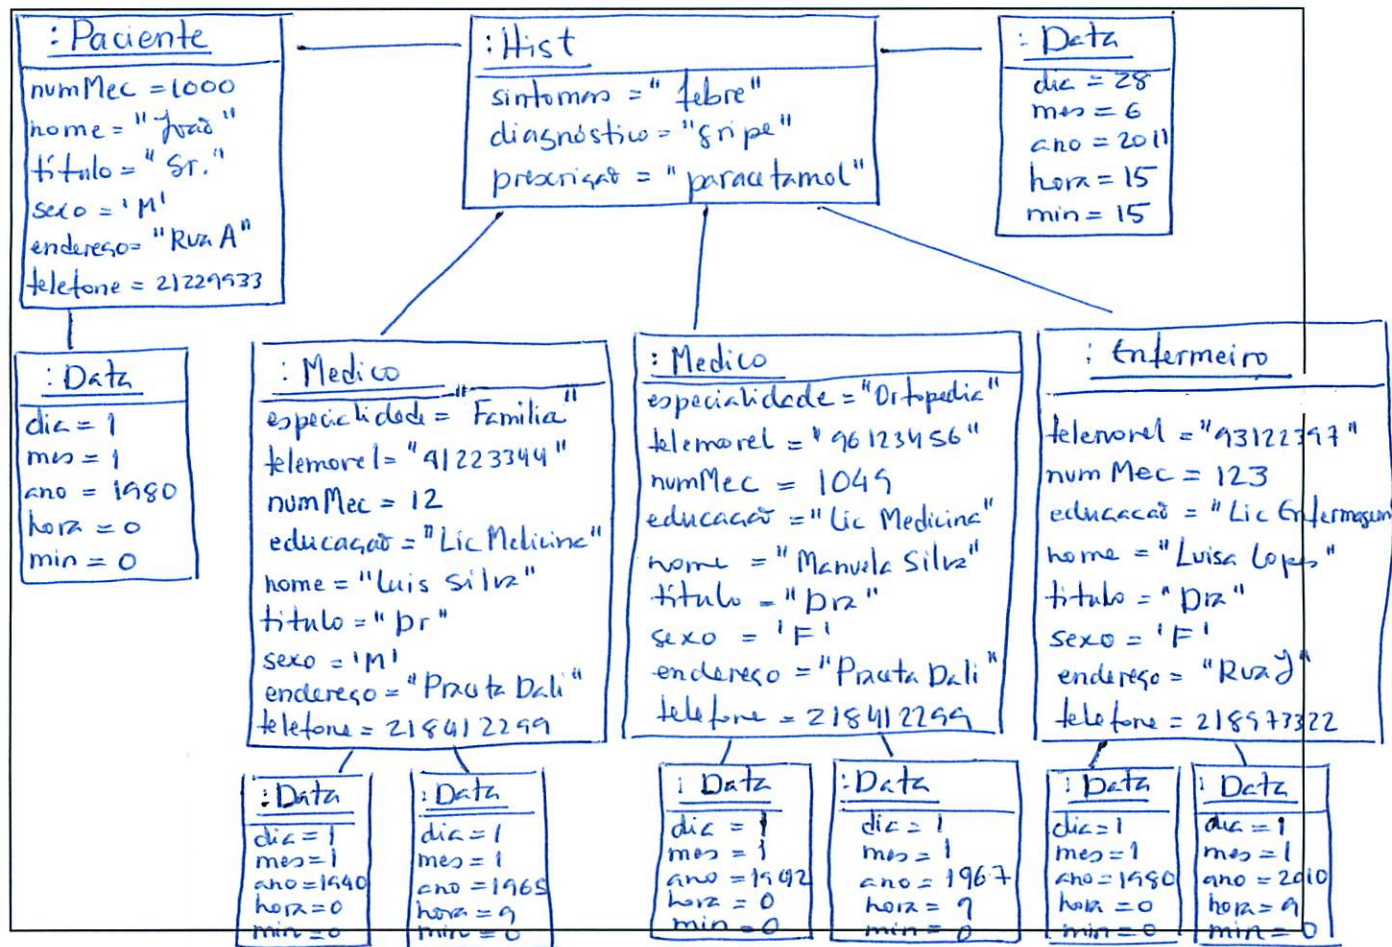 : Paciente
numMec = 1000
nome = "João"
título = "Sr."
sexo = 'M'
endereço = "Rua A"
telefone = 21229933
: Hist
sintomas = "febre"
diagnóstico = "gripe"
prescrição = "paracetamol"
: Data
dia = 28
mes = 6
ano = 2011
hora = 15
min = 15
: Data
dia = 1
mes = 1
ano = 1980
hora = 0
min = 0
: Medico
especialidade = "Familia"
telemovel = "91223344"
numMec = 12
educação = "Lic Medicina"
nome = "Luis Silva"
titulo = "Dr"
sexo = 'M'
endereço = "Praceta Dali"
telefone = 218412299
: Medico
especialidade = "Ortopedia"
telemovel = "96123456"
numMec = 1049
educacão = "Lic Medicina"
nome = "Manuela Silva"
título = "Dra"
sexo = 'F'
endereço = "Praceta Dali"
telefone = 218412299
: Enfermeiro
telemovel = "93122397"
num Mec = 123
educacão = "Lic Enfermagem
nome = "Luisa Lopes"
título = "Dra"
sexo = 'F'
endereço = "Rua J"
telefone = 218973322
: Data
dia = 1
mes = 1
ano = 1940
hora = 0
min = 0
: Data
dia = 1
mes = 1
ano = 1965
hora = 9
min = 0
: Data
dia = 1
mes = 1
ano = 1942
hora = 0
min = 0
: Data
dia = 1
mes = 1
ano = 1967
hora = 9
min = 0
: Data
dia = 1
mes = 1
ano = 1980
hora = 0
min = 0
: Data
dia = 1
mes = 1
ano = 2010
hora = 9
min = 0